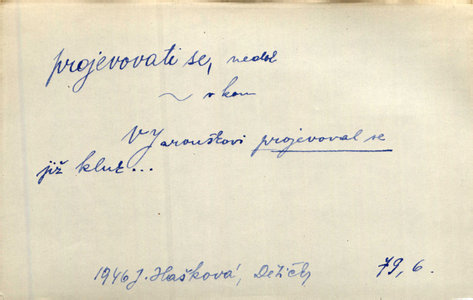 projevovati se, nedok
~ v kom
V Jarouškovi projevoval se
již kluk...
1946 J. Hašková, Dědičky 79, 6.